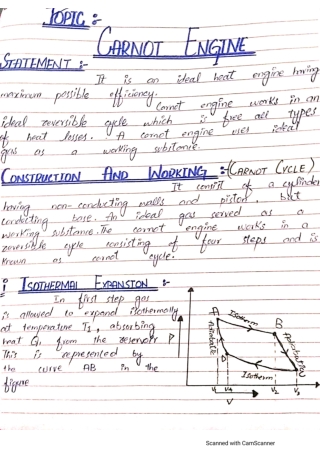 TOPIC :-
CARNOT ENGINE
STATEMENT :-
It is an ideal heat engine having
maximum possible efficiency.
Carnot engine works in an
ideal reversible cycle which is free all types
of heat losses. A carnot engine uses ideal
gas as a working substance.
CONSTRUCTION AND WORKING :- (CARNOT CYCLE)
It consist of a cylinder
having non-conducting walls and piston, but
conducting base. An ideal gas served as a
working substance. The carnot engine works in a
reversible cycle consisting of four steps and is
known as carnot cycle.
i ISOTHERMAL EXPANSION :-
In first step gas
is allowed to expand isothermally
at temperature T1, absorbing
heat Q1 from the reservoir
This is represented by
the curve AB in the
figure
P
A
Isotherm
B
Adiabatic
D
Isotherm
V1 V4 V2 V3
V
Scanned with CamScanner